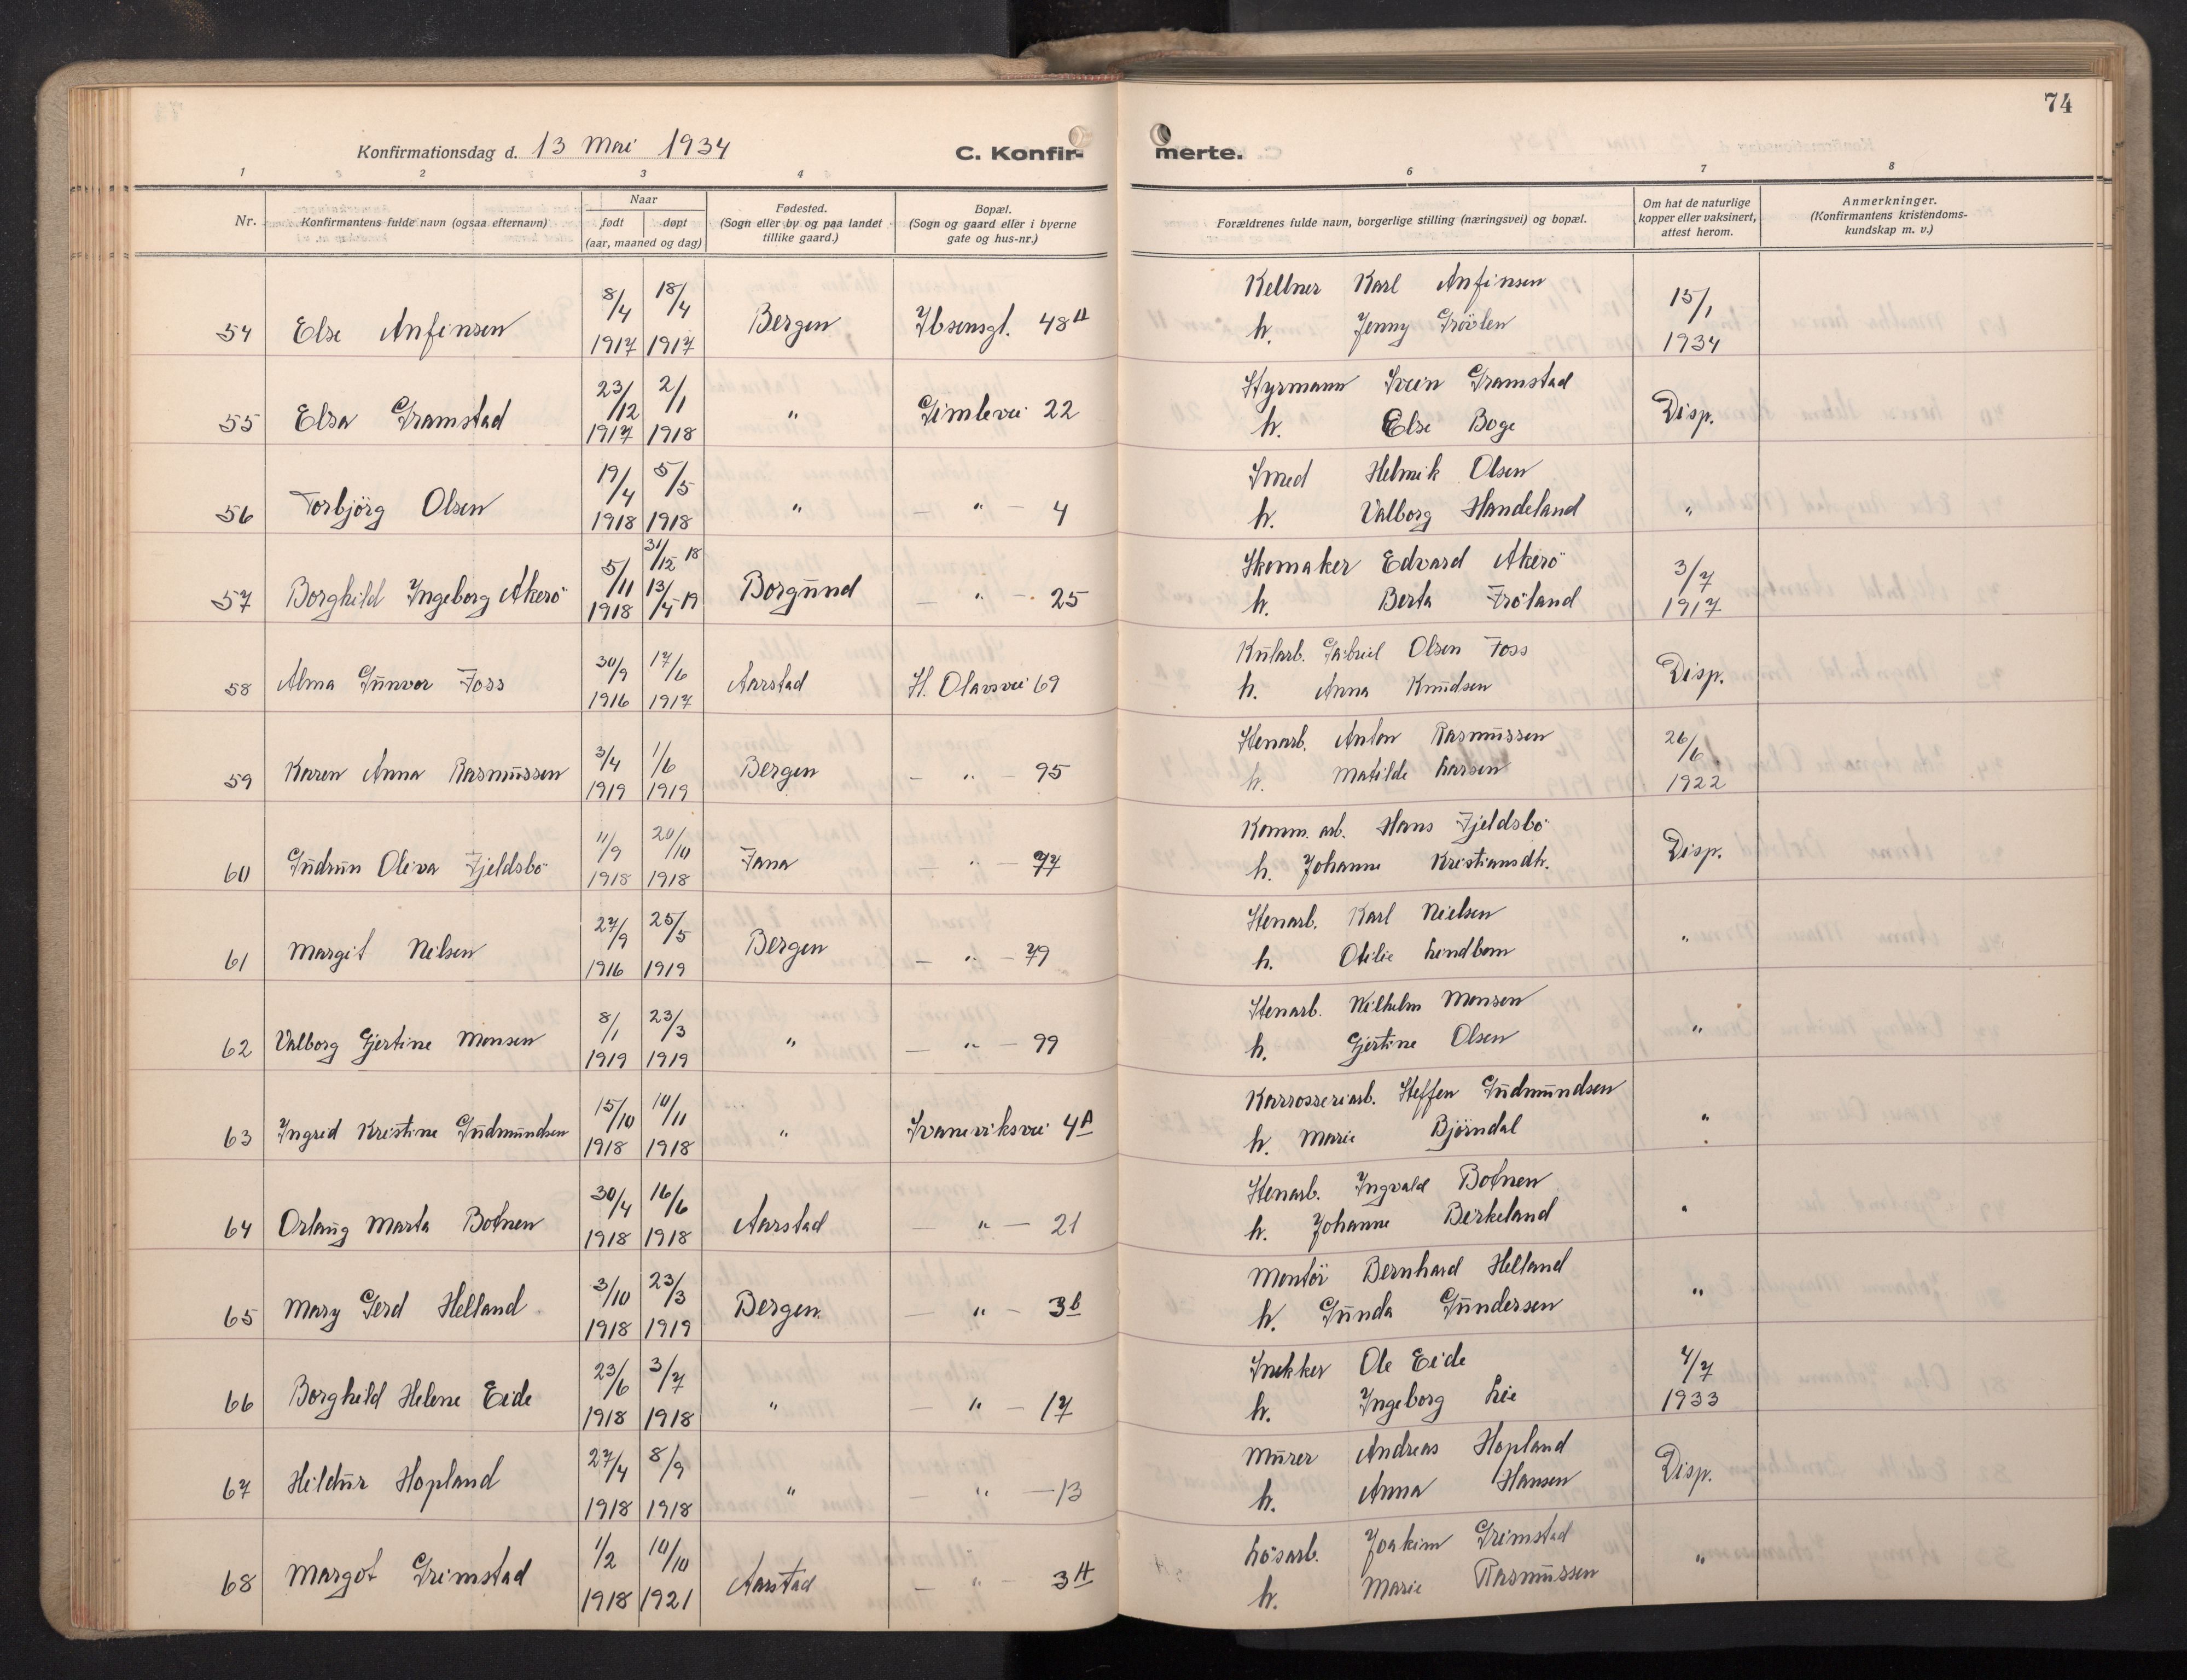 74
Konfirmationsdag d. 13 Mai 1934 C. Konfir- merte.
1 2 3 4 6 7 8
Nr. Konfirmantens fulde navn (ogsaa efternavn) Naar født døpt (aar, maaned og dag) Fødested. (Sogn eller by og paa landet tillike gaard.) Bopæl. (Sogn og gaard eller i byerne gate og hus-nr.) Forældrenes fulde navn, borgerlige stilling (næringsvei) og bopæl. Om hat de naturlige kopper eller vaksinert, attest herom. Anmerkninger. (Konfirmantens kristendoms-kundskap m. v.)
54 Else Anfinsen 8/4 1917 18/4 1917 Bergen Ibsensgt. 48A Kellner Karl Anfinsen
h. Jenny Trövlen 15/1 1934
55 Elsa Gramstad 23/12 1917 2/1 1918 " Gimlevei 22 Styrmann Svein Gramstad
h. Else Boge Disp.
56 Torbjörg Olsen 19/4 1918 5/5 1918 " — " — 4 Smed Helmik Olsen
h. Valborg Handeland "
57 Borghild Ingeborg Akerö 5/11 1918 31/12 18 13/4-19 Borgund — " — 25 Skomaker Edvard Akerö
h. Berta Fröland 3/7 1917
58 Alma Gunvor Foss 30/9 1916 17/6 1917 Aarstad H. Olavsvei 69 Kularb. Gabriel Olsen Foss
h. Anna Knudsen Disp.
59 Karen Anna Rasmussen 3/4 1919 1/6 1919 Bergen — " — 95 Stenarb. Anton Rasmussen
h. Matilde Larsen 26/6 1922
60 Gudrun Oleva Fjeldsbö 11/9 1918 20/10 1918 Fana — " — 77 Komm. arb. Hans Fjeldsbö
h. Johanne Kristiansdtr. Disp.
61 Margit Nilsen 27/9 1916 25/5 1919 Bergen — " — 79 Stenarb. Karl Nielsen
h. Otilie Lindbom "
62 Valborg Gjertine Monsen 8/1 1919 23/3 1919 " — " — 99 Stenarb. Wilhelm Monsen
h. Gjertine Olsen "
63 Ingrid Kristine Gudmundsen 15/10 1918 10/11 1918 " Svaneviksvei 4A Karrosseriarb. Steffen Gudmundsen
h. Marie Björndal "
64 Orlaug Marta Botnen 30/4 1918 16/6 1918 Aarstad — " — 21 Stenarb. Ingvald Botnen
h. Johanne Birkeland "
65 Mary Gerd Helland 3/10 1918 23/3 1919 Bergen. — " — 3b Montör Bernhard Helland
h. Gunda Gundersen "
66 Borghild Helene Eide 23/6 1918 3/7 1918 " — " — 17 Snekker Ole Eide
h. Ingeborg Lie 4/7 1933
67 Hildur Hopland 27/4 1918 8/9 1918 " — " — 13 Murer Andreas Hopland
h. Anna Hansen Disp.
68 Margot Grimstad 1/2 1918 10/10 1921 Aarstad — " — 3A Lösarb. Joakim Grimstad
h. Marie Rasmussen "